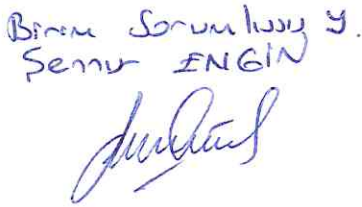 Birim Sorumlusu Y.
Sennur ENGİN